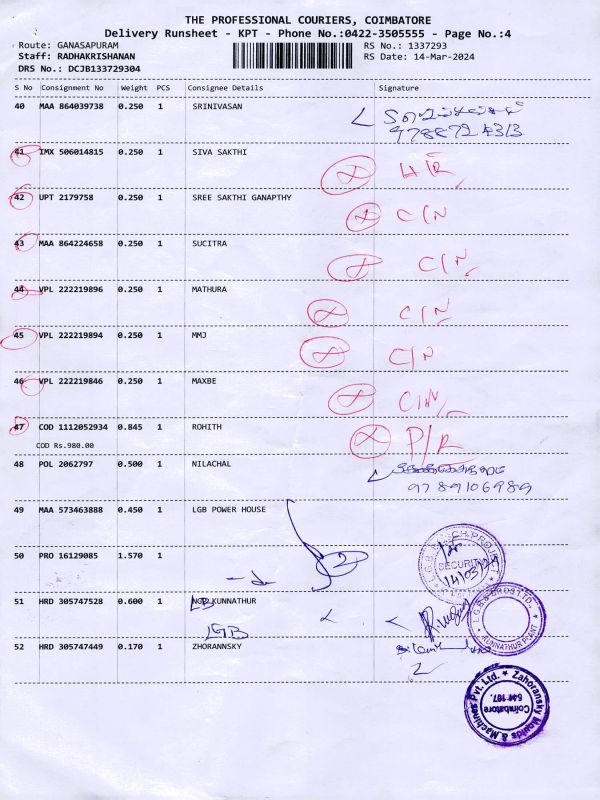 THE PROFESSIONAL COURIERS, COIMBATORE
Delivery Runsheet - KPT - Phone No.:0422-3505555 - Page No.:4
Route: GANASAPURAM
RS No.: 1337293
Staff: RADHAKRISHANAN
RS Date: 14-Mar-2024
DRS No.: DCJB133729304
S No Consignment No Weight PCS Consignee Details Signature
40 MAA 864039738 0.250 1 SRINIVASAN
41 IMX 506014815 0.250 1 SIVA SAKTHI
42 UPT 2179758 0.250 1 SREE SAKTHI GANAPTHY C/N
43 MAA 864224658 0.250 1 SUCITRA C/N
44 VPL 222219896 0.250 1 MATHURA C/N
45 VPL 222219894 0.250 1 MMJ C/N
46 VPL 222219846 0.250 1 MAXBE C/N
47 COD 1112052934 0.845 1 ROHITH P/R
COD Rs.980.00
48 POL 2062797 0.500 1 NILACHAL
9789106989
49 MAA 573463888 0.450 1 LGB POWER HOUSE
50 PRO 16129085 1.570 1 2
SECURITY
14/03/24
51 HRD 305747528 0.600 1 NGR KUNNATHUR
L.G.B & BROS LTD.,
KUNNATHUR PLANT
LGB
52 HRD 305747449 0.170 1 ZHORANNSKY
Zahoransky Moulds & Machines Pvt. Ltd.
Coimbatore
641 107.